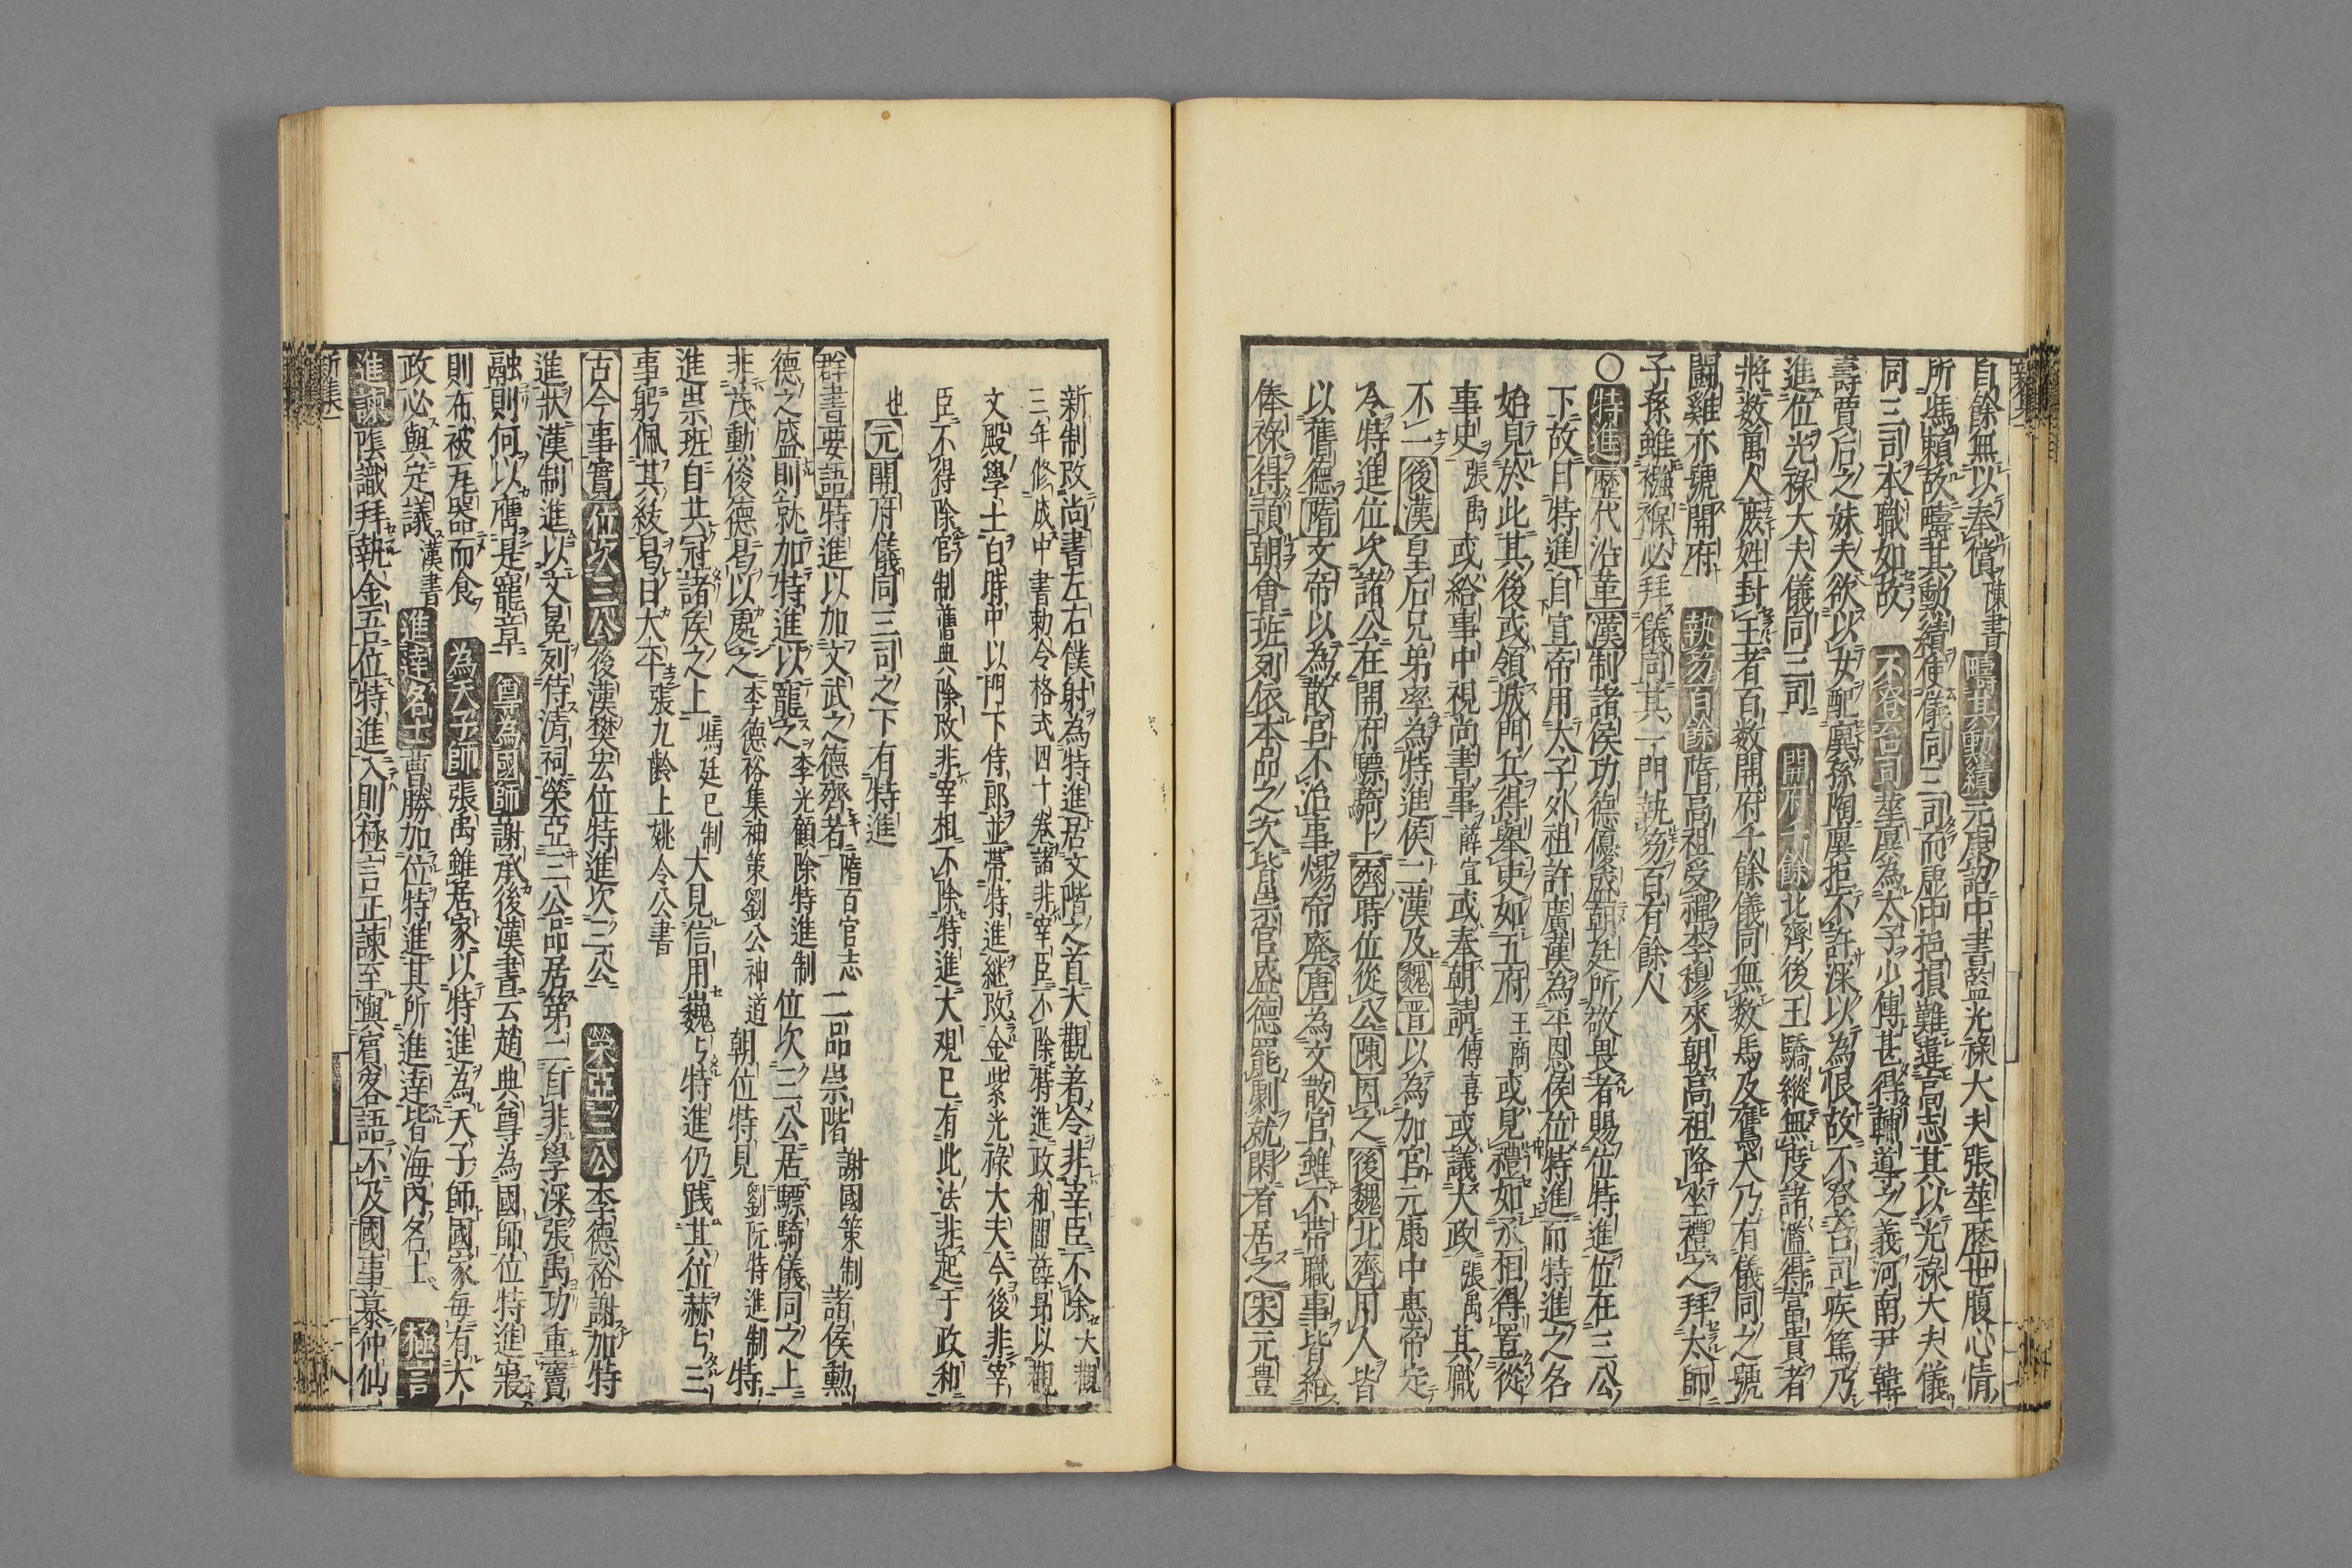 自餘無以奉償陳書疇其勳績元康詔中書監光祿大夫張華歷世腹心情
所馮賴故疇其勳績使儀同三司而虛中挹損難違高志其以光祿大夫儀
同三司本職如故不答台司華廙為太子少傅甚得輔導之義河南尹韓
壽賈后之妹夫欲以女配廙孫陶廙拒不許深以為恨故不登台司疾篤乃
進位光祿大夫儀同三司開府千餘北齊後王驕縱無度諸濫得富貴者
將数萬人庶姓封王者百数開府千餘儀同無数馬及鷹犬乃有儀同之號
鬪雞亦號開府執笏百餘隋高祖受禪李穆來朝高祖降坐禮之拜太師
子孫雖襁褓必拜儀同其一門執笏百有餘人
〇特進歷代沿革漢制諸侯功德優盛朝廷所敬畏者賜位特進位在三公
下故曰特進自宣帝用太子外祖許廣漢為平恩侯位特進而特進之名
始見於此其後或領城門兵得舉吏如五府王商或見禮如丞相得置從
事史張禹或給事中視尚書事薛宣或奉朝請傅喜或議大政張禹其職
不一後漢皇后兄弟率為特進侯二漢及魏晋以為加官元康中惠帝定
令特進位次諸公在開府驃騎上齊時位從公陳因之後魏北齊用人皆
以舊德隋文帝以為散官不治事煬帝廢唐為文散官雖不帶職事皆給
俸祿得預朝會班列依本品之次皆崇官盛德罷劇就閑者居之宋元豊
新制改尚書左右僕射為特進居文階之首大觀著令非宰臣不除大觀
三年修成中書勅令格式四十卷諸非宰臣不除特進政和間薛昂以觀
文殿學士白時中以門下侍郎並帶特進継改金紫光祿大夫今後非宰
臣不得除官制舊典除改非宰相不除特進大观已有此法非起于政和
也
元開府儀同三司之下有特進
群書要語特進以加文武之德齊者隋百官志二品崇階謝國策制諸侯勳
德之盛則就加特進以寵之李光顧除特進制位次三公居驃騎儀同之上
非茂勳俊德曷以處之李德裕集神策劉公神道朝位特見劉阮特進制特
進崇班自共冠諸侯之上馮延巳制大見信用巍巍特進仍践其位赫赫三
事躬佩其紱曷曰大平張九齡上姚令公書
古今事實位次三公後漢樊宏位特進次三公榮亞三公李德裕謝加特
進狀漢制進以文冕列侍清祠榮亞三公品居第二自非學深張禹功重竇
融則何以膺是寵章尊為國師謝承後漢書云趙典尊為國師位特進寢
則布被瓦器而食為天子師張禹雖居家以特進為天子師國家每有大
政必與定議漢書進達名士曹勝加位特進其所進達皆海內名士極言
進諫陰識拜執金吾位特進入則極言正諫至與賓客語不及國事慕仲仙